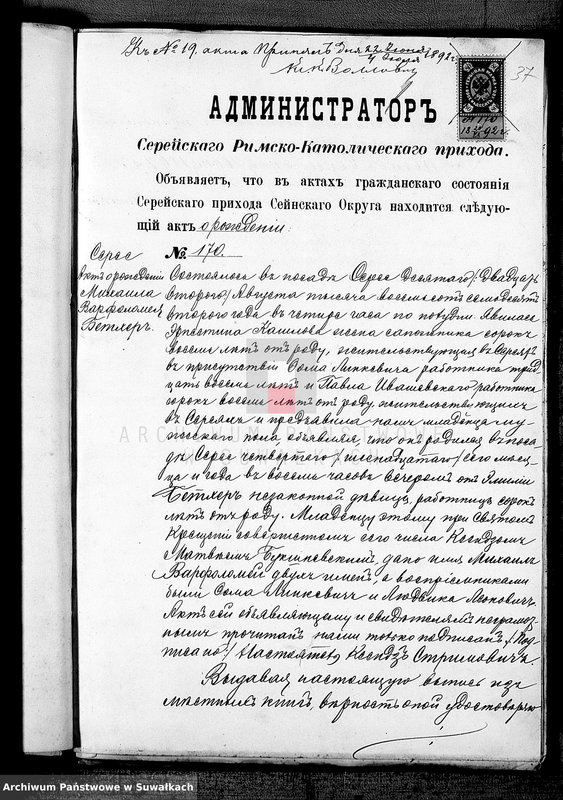 Къ № 19. акта Принялъ дня 22 Іюня / 4 Іюля 1892 г.
37
1892 г.
АДМИНИСТРАТОРЪ
Серейскаго Римско-Католическаго прихода.
Объявляетъ, что въ актахъ гражданскаго состоянія
Серейскаго прихода Сейнскаго Округа находится слѣдую-
щій актъ о рожденіи:
№ 170.
Серее
Актъ о рожденіи
Михаила
Варфоломея
Бетхеръ.
Состоялось въ посадѣ Серее Десятаго / Двадцать
втораго / Августа тысяча восемьсотъ семьдесятъ
втораго года въ четыре часа по полудни. Явилась
Эрнестина жена сапожника сорокъ
восемь лѣтъ отъ роду, жительствующая въ Сереяхъ
въ присутствіи Сома Линкевича работника трид
цать восемь лѣтъ и Павла Ивашевскаго работника
сорокъ восемь лѣтъ отъ роду, жительствующихъ
въ Сереяхъ и предъявила намъ младенца му-
жескаго пола объявляя, что онъ родился въ поса-
дѣ Серее четвертаго / шестнадцатаго / сего мѣся-
ца и года въ восемь часовъ вечеромъ отъ Эмиліи
Бетхеръ незаконной дѣвицы, работницы сорокъ
лѣтъ отъ роду. Младенцу этому при Святомъ
Крещеніи совершенномъ сего числа Ксендзомъ
Матвѣемъ дано имя Михаилъ
Варфоломей двухъ именъ, а воспріемниками
были Сома Линкевичъ и Людвика
Актъ сей объявляющему и свидѣтелямъ неграмот
нымъ прочитанъ нами только подписанъ / Под-
писано / Настоятель Ксендзъ Стримовичъ.
Выдавая настоящую выпись изъ
мѣстныхъ книгъ, вѣрность оной удостовѣряю
ARCHIWUM PAŃSTWOWE
Archiwum Państwowe w Suwałkach